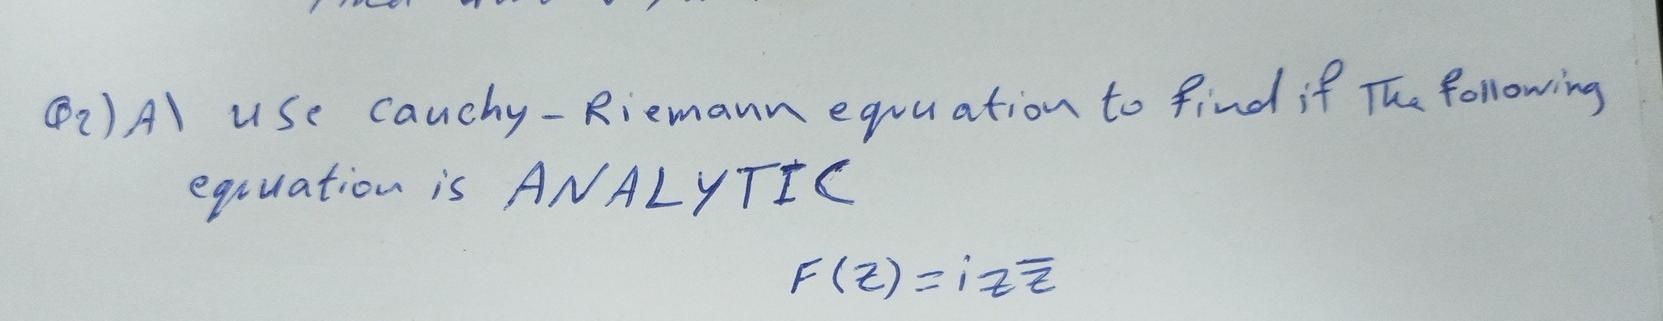 Q2) A\ use cauchy-Riemann equuation to find if The following
equuation is ANALYTIC
F(z) = i z z̅